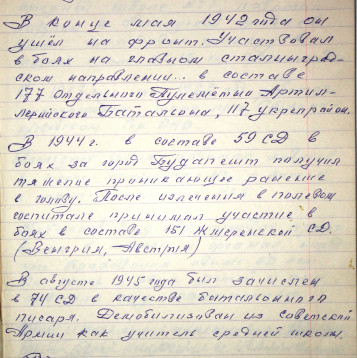 В конце мая 1942 года он
ушёл на фронт. Участвовал
в боях на главном сталинград-
ском направлении.. в составе
177 Отдельного Пулемётно Артил-
лерийского Батальона, 117 укрепрайон.
В 1944 г. в составе 59 СД в
боях за город Будапешт получил
тяжелое проникающее ранение
в голову. После излечения в полевом
госпитале принимал участие в
боях в составе 151 Жмеренской СД.
(Венгрия, Австрия)
В августе 1945 года был зачислен
в 74 СД в качестве батальонного
писаря. Демобилизован из советской
Армии как учитель средней школы.